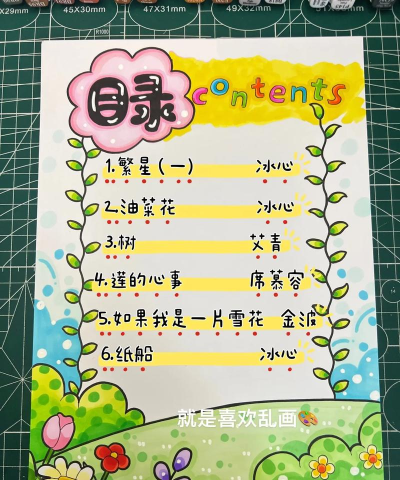 45X30MM
47X31MM
49X32MM
目录 contents
1.繁星(一) 冰心
2.油菜花 冰心
3.树 艾青
4.莲的心事 席慕容
5.如果我是一片雪花 金波
6.纸船 冰心
就是喜欢乱画🎨